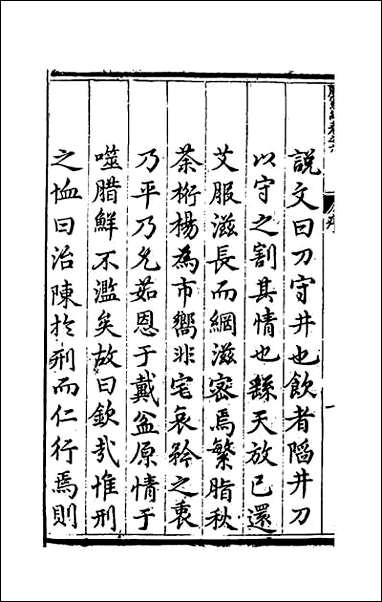 說文曰刀守井也飲者陷井刀
以守之割其情也繇天放已還
艾服滋長而網滋密焉繁脂秋
荼桁楊為市嚮非宅哀矜之衷
乃平乃允茹恩于戴盆原情于
噬腊鮮不濫矣故曰欽㢤惟刑
之恤曰治陳於刑而仁行焉則